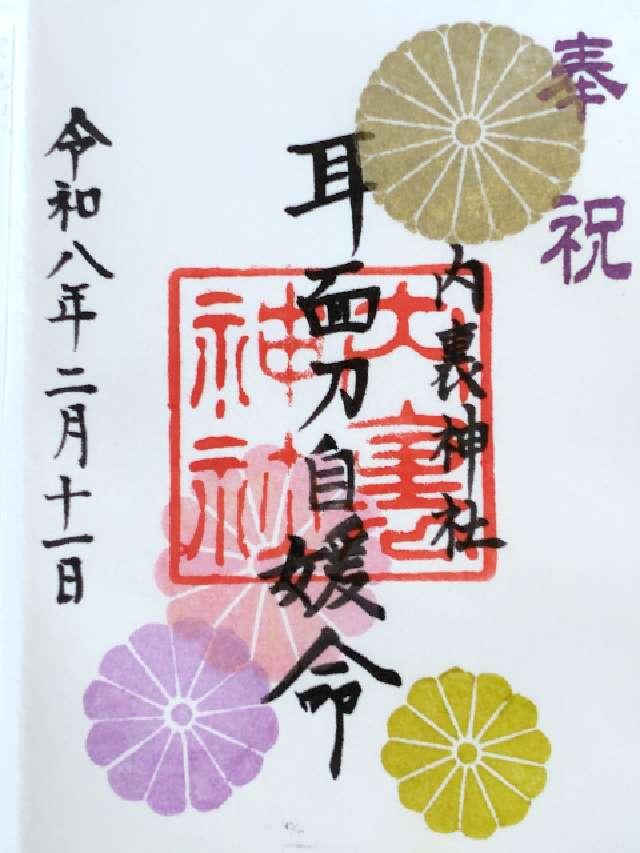 奉祝
内裏神社
耳面刀自媛命
内裏神社
令和八年二月十一日